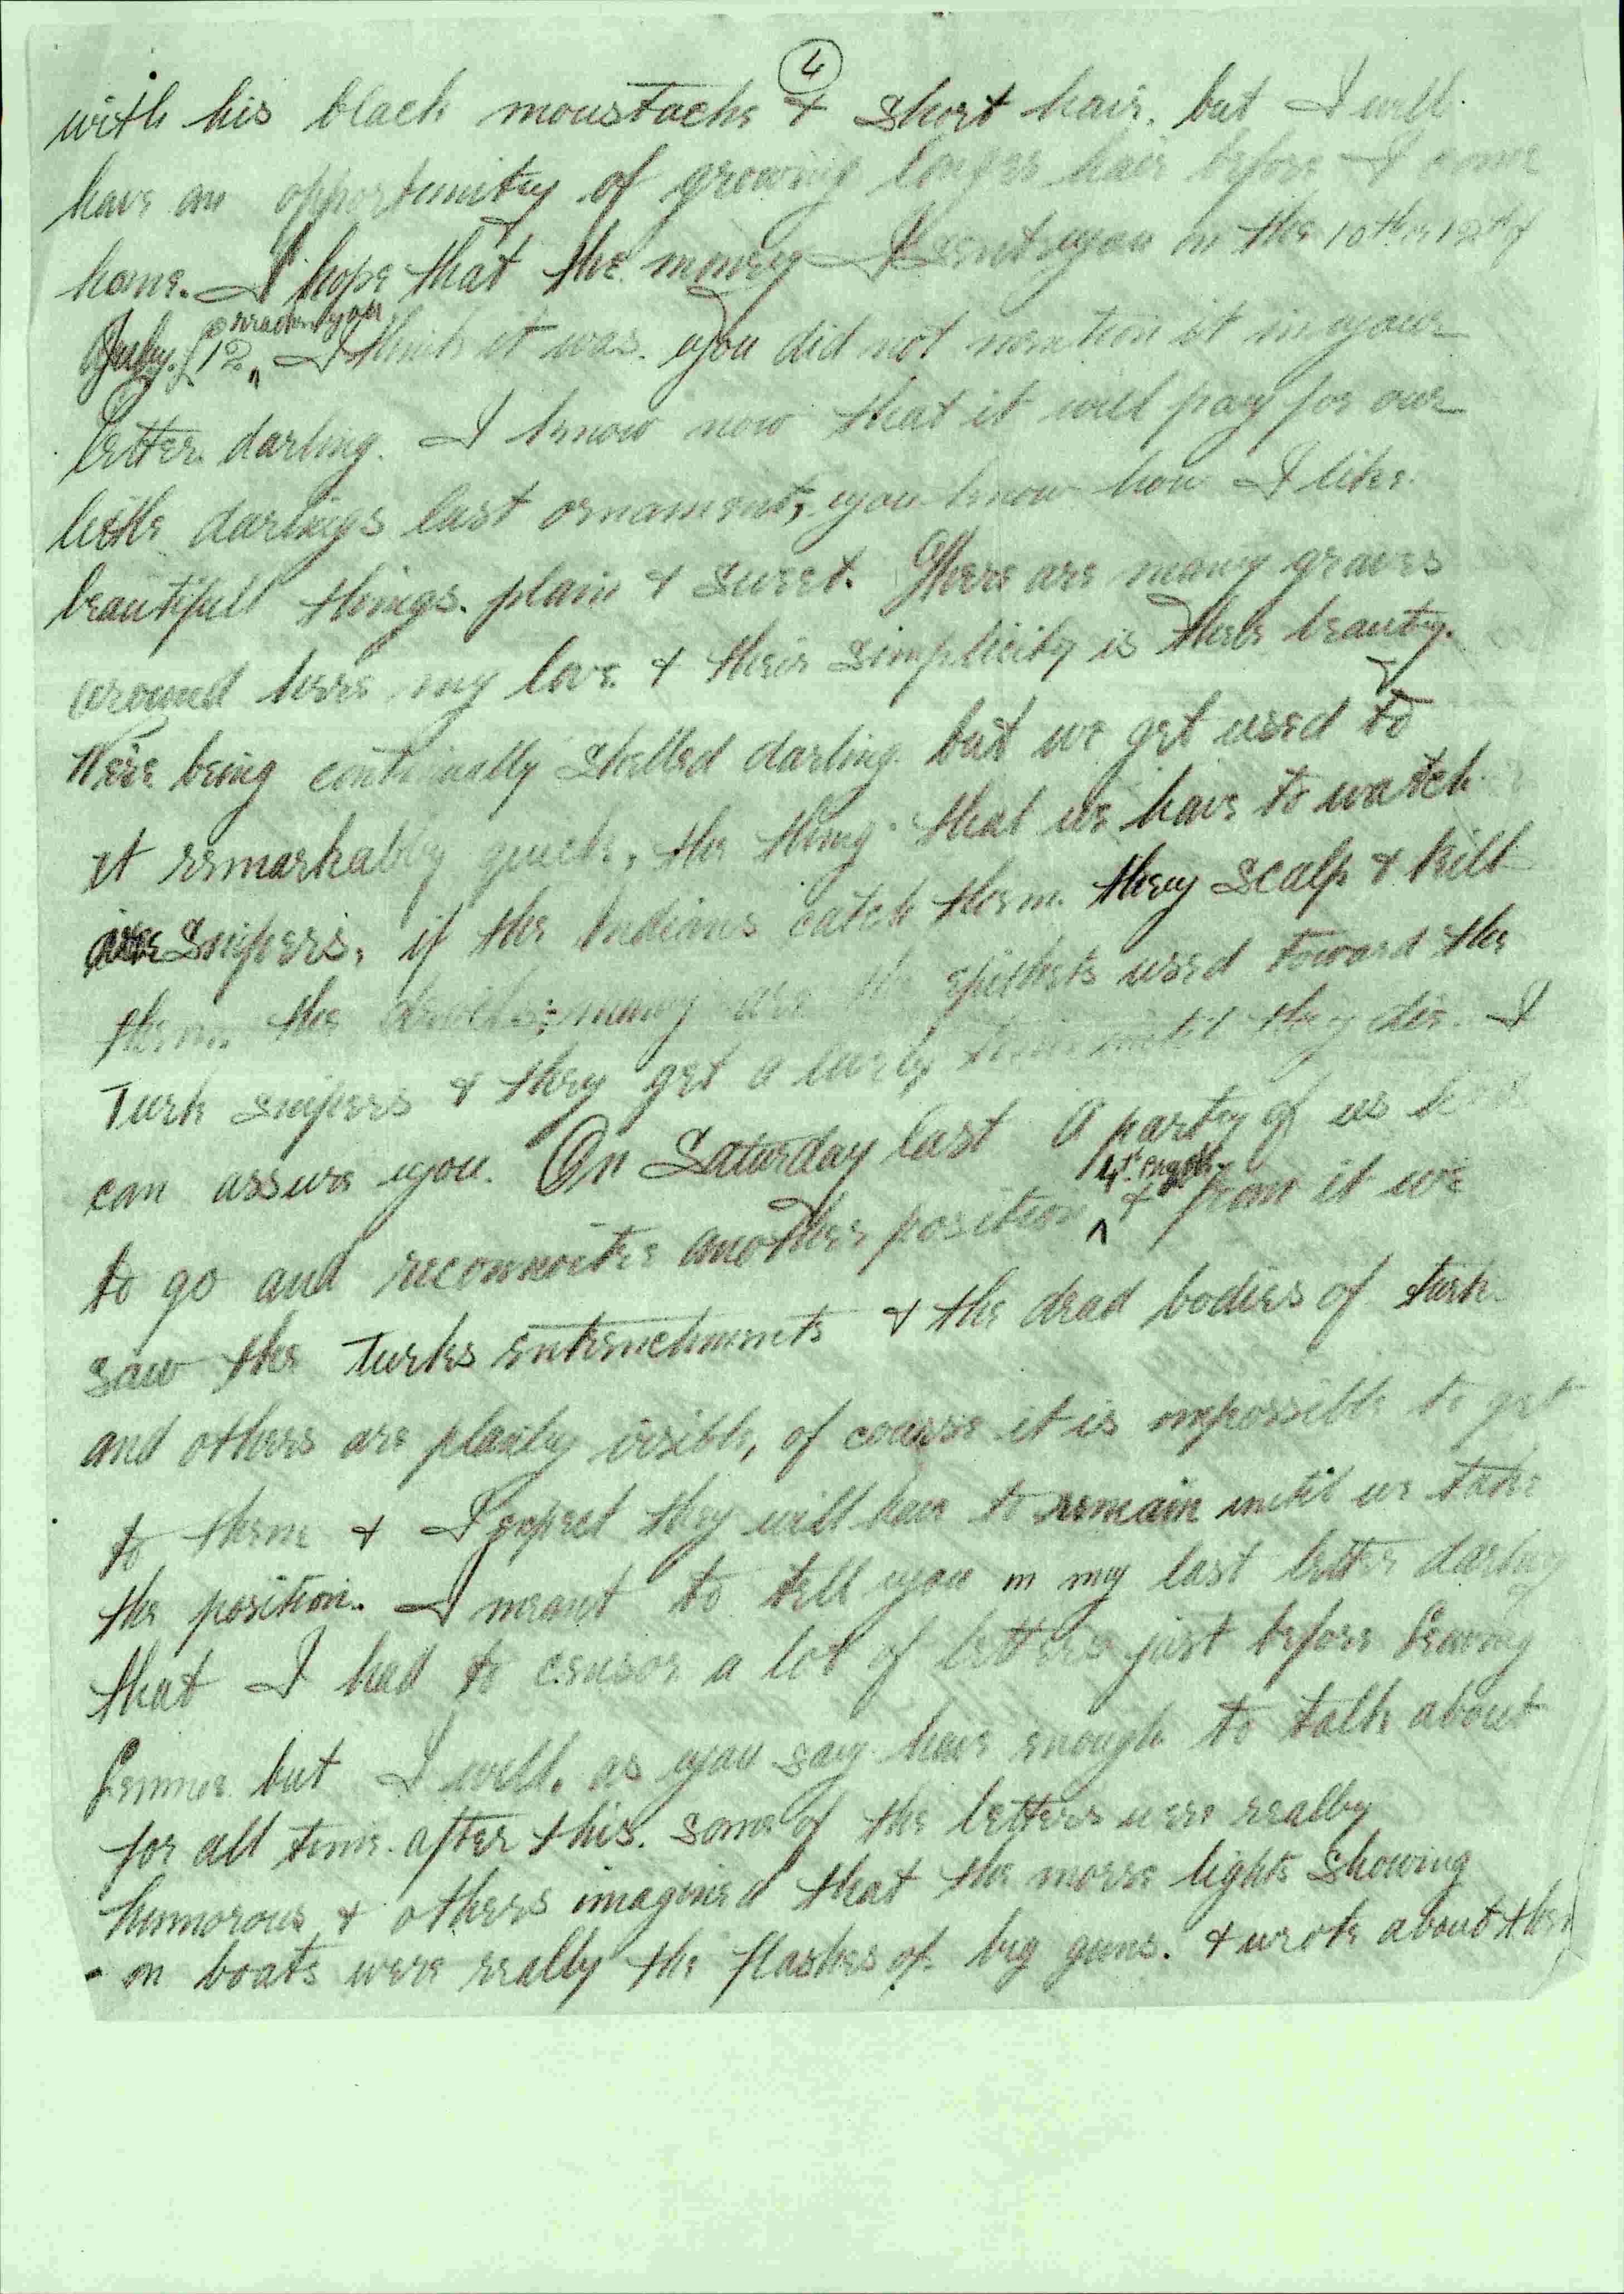 4
with his black moustache & short hair. but I will
have an opportunity of growing longer hair before I come
home. I hope that the money I sent you on the 10th or 12th of
reached you
July. £12, I think it was. you did not mention it in your
letter darling. I know now that it will pay for our
little darlings last ornament, you know how I like
beautifull things. plain & sweet. There are many graves
around here my love & their simplicity is their beauty.
We're being continually shelled darling but we get used to
it remarkably quick, the thing that we have to watch
are Snipers, if the Indians catch them. they scalp & kill
them. the devils; many are the epithets used toward the
Turk snipers & they get a lively time until they die. I
can assure you. On Saturday last a party of us had
to go and reconnoitre another position & from it we
saw the Turks entrenchments & the dead bodies of turk
and others are plainly visible, of course it is impossible to get
to them & I expect they will have to remain until we take
the position. I meant to tell you in my last letter darling
that I had to censor a lot of letters just before leaving
Lemnos but I will, as you say have enough to talk about
for all time after this. some of the letters were really
humorous & others imagined that the morse lights showing
on boats were really the flashes of big guns. & wrote about them